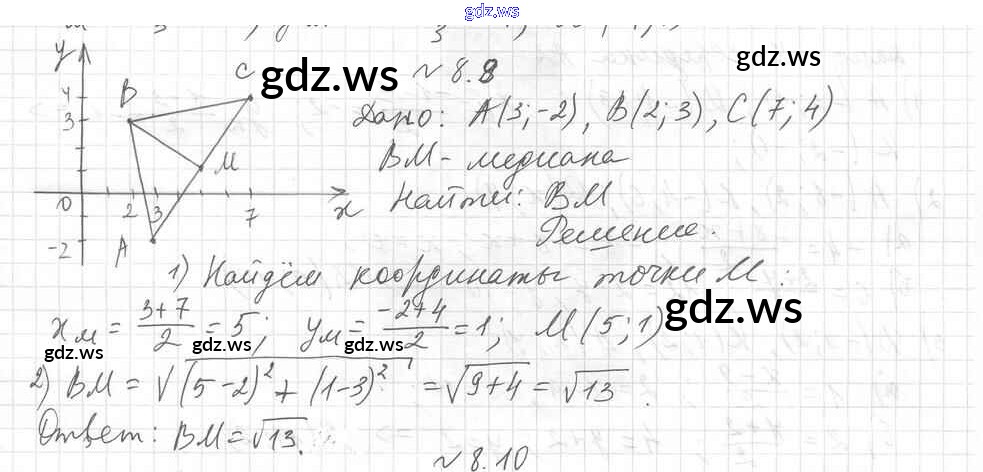 gdz.ws
№ 8.8
gdz.ws
gdz.ws
y
C
B
4
3
M
0
2
3
7
x
-2
A
Дано: A(3;-2), B(2;3), C(7;4)
BM - медиана
Найти: BM
Решение.
1) Найдём координаты точки M:
x_M = \frac{3+7}{2} = 5; y_M = \frac{-2+4}{2} = 1; M(5;1)
gdz.ws
gdz.ws
gdz.ws
gdz.ws
2) BM = √((5-2)² + (1-3)²) = √(9+4) = √13.
Ответ: BM = √13.
№ 8.10